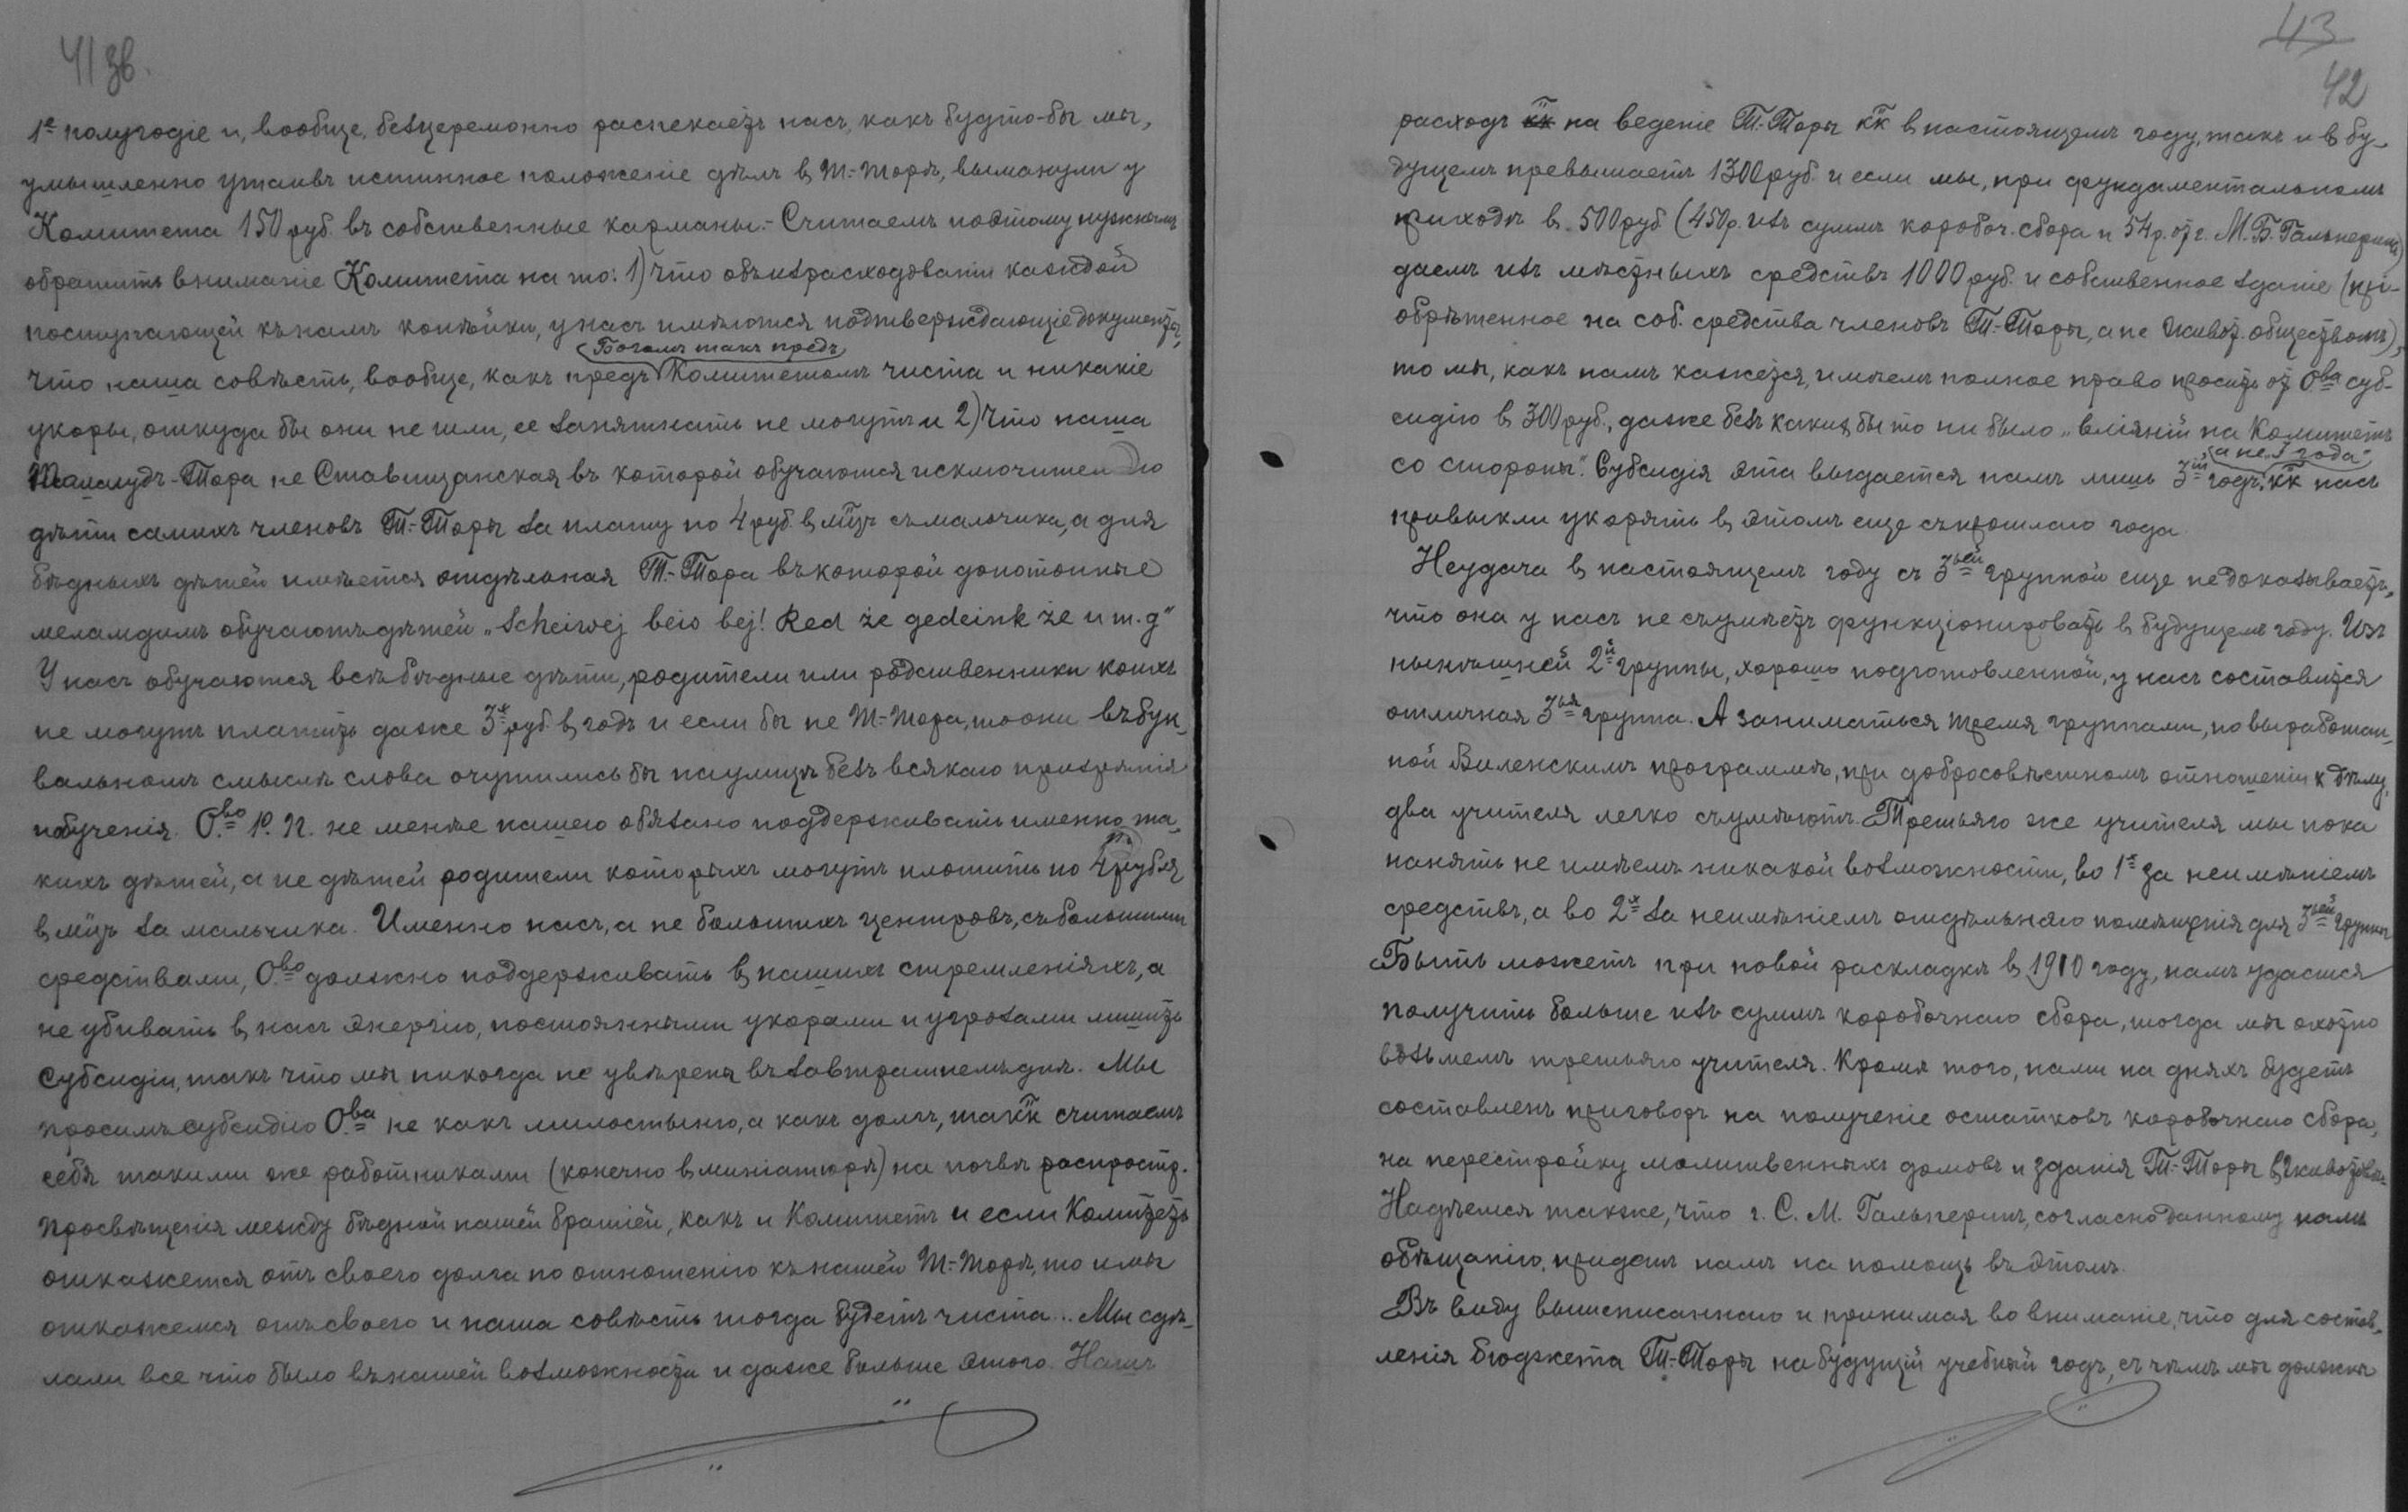 41 зв.
1е полугодіе и, вообще, безцеремонно распекаетъ насъ, какъ будто-бы мы,
умышленно утаивъ истинное положеніе дѣлъ въ Т.-Торѣ, выманули у
Комитета 150 руб. въ собственные карманы.- Считаемъ поэтому нужнымъ
обратить вниманіе Комитета на то: 1) что объ израсходованіи каждой
поступающей къ намъ копѣйки, у насъ имѣются подтверждающіе документы,
что наша совѣсть, вообще, какъ предъ Богомъ такъ предъ Комитетомъ чиста и никакіе
укоры, откуда бы они не шли, ее запятнать не могутъ и 2) Что наша
Талмудъ-Тора не Ставищанская въ которой обучаются исключительно
дѣти самихъ членовъ Т.-Торы за плату по 4 руб. въ мцъ съ мальчика, а для
бѣдныхъ дѣтей имѣется отдѣльная Т.-Тора въ которой допотопные
меламдимъ обучаютъ дѣтей „Scheiwej beis bej! Red że gedeink że и т. д"
У насъ обучаются всѣ бѣдные дѣти, родители или родственники коихъ
не могутъ платить даже 3х руб. въ годъ и если бы не Т.-Тора, то они въ бук-
вальномъ смыслѣ слова очутились бы на улицѣ безъ всякаго призрѣнія
и обученія. О.во Ю. П. не менѣе нашего обязано поддерживать именно та-
кихъ дѣтей, а не дѣтей родители которыхъ могутъ платить по 4 рубля
въ мцъ за мальчика. Именно насъ, а не большихъ центровъ, съ большими
средствами, О.во должно поддерживать въ нашихъ стремленіяхъ, а
не убивать въ насъ энергію, постоянными укорами и угрозами лишить
субсидіи, такъ что мы никогда не увѣрены въ завтрашнемъ днѣ. Мы
просимъ субсидію О.ва не какъ милостыню, а какъ долгъ, такк считаемъ
себя такими же работниками (конечно въ миніатюрѣ) на почвѣ распростр.
просвѣщенія между бѣдной нашей братіей, какъ и Комитетъ и если Комитетъ
откажется отъ своего долга по отношенію къ нашей Т.-Торѣ, то и мы
откажемся отъ своего и наша совѣсть тогда будетъ чиста... Мы сдѣ-
лали все что было въ нашей возможности и даже больше этого. Нашъ
43
42
расходъ кк на веденіе Т.-Торы кк въ настоящемъ году, такъ и въ бу-
дущемъ превышаетъ 1300 руб. и если мы, при фундаментальномъ
приходѣ въ 500 руб. (450р. изъ суммъ коробоч. сбора и 54р. отъ г. М. Б. Гальперина)
даемъ изъ мѣстныхъ средствъ 1000 руб. и собственное зданіе (прі-
обрѣтенное на соб. средства членовъ Т.-Торы, а не Живот. обществомъ),
то мы, какъ намъ кажется, имѣемъ полное право просить отъ О.ва суб-
сидію въ 300 руб., даже безъ какихъ бы то ни было „вліяній на Комитетъ
со стороны". Субсидія эта выдается намъ лишь 3ій годъ, а не „5 года" кк насъ
привыкли укорять въ этомъ еще съ прошлаго года.
Неудача въ настоящемъ году съ 3ьей группой еще не доказываетъ,
что она у насъ не съумѣетъ функціонировать въ будущемъ году. Изъ
нынѣшней 2й группы, хорошо подготовленной, у насъ составится
отличная 3ья группа. А заниматься тремя группами, по выработан-
ной Виленскимъ программѣ, при добросовѣстномъ отношеніи к дѣлу,
два учителя легко съумѣютъ. Третьяго же учителя мы пока
нанять не имѣемъ никакой возможности, во 1х за неимѣніемъ
средствъ, а во 2х за неимѣніемъ отдѣльнаго помѣщенія для 3ьей группы
Быть можетъ при новой раскладкѣ въ 1910 году, намъ удастся
получить больше изъ суммъ коробочнаго сбора, тогда мы охотно
возьмемъ третьяго учителя. Кромѣ того, нами на дняхъ будетъ
составленъ приговоръ на полученіе остатковъ коробочнаго сбора,
на перестройку молитвенныхъ домовъ и зданія Т.-Торы въ Животовѣ.
Надѣемся также, что г. С. М. Гальперинъ, согласно данному намъ
обѣщанію, придетъ намъ на помощь въ этомъ.
Въ виду вышеписаннаго и принимая во вниманіе, что для состав-
ленія бюджета Т.-Торы на будущій учебный годъ, съ чѣмъ мы должны